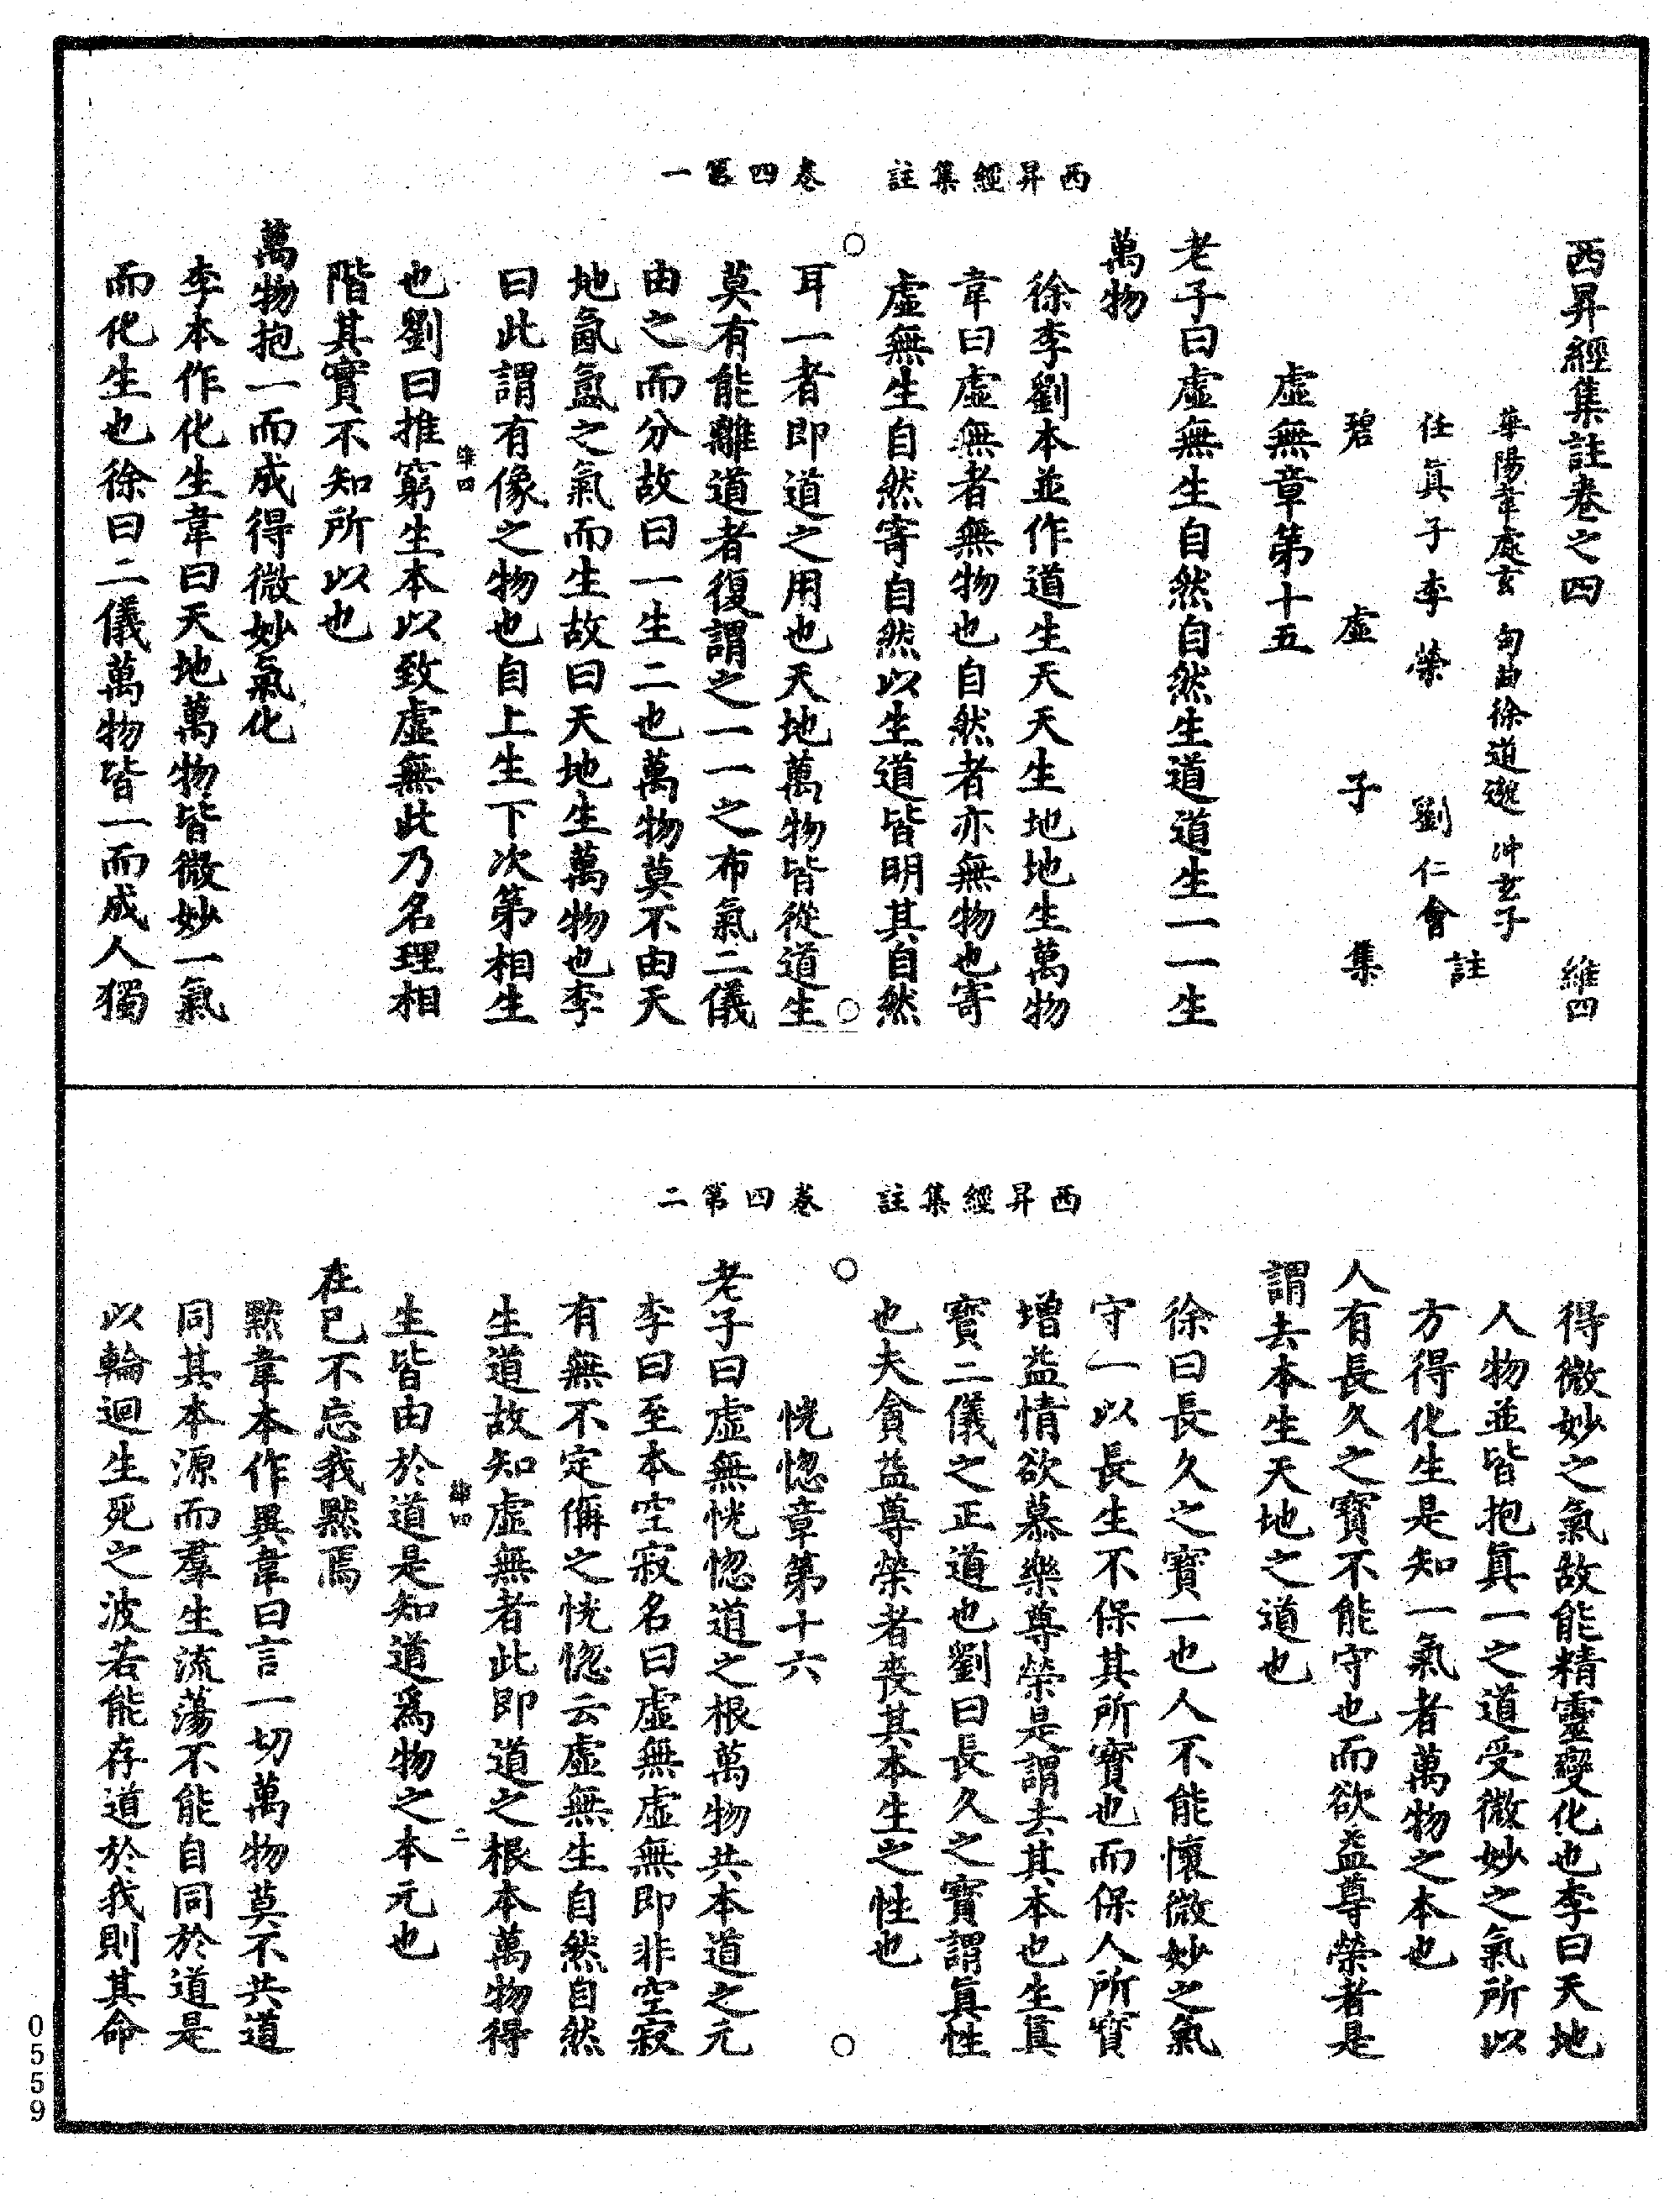 西昇經集註　卷四第一
西昇經集註卷之四　維四
華陽韋處玄　句曲徐道邈　冲玄子
任真子李榮　劉仁會　註
碧虛子　集
虛無章第十五
老子曰虛無生自然自然生道道生一一生
萬物
徐李劉本並作道生天天生地地生萬物
韋曰虛無者無物也自然者亦無物也寄
虛無生自然寄自然以生道皆明其自然
耳一者即道之用也天地萬物皆從道生
莫有能離道者復謂之一一之布氣二儀
由之而分故曰一生二也萬物莫不由天
地氤氳之氣而生故曰天地生萬物也李
曰此謂有像之物也自上生下次第相生
維四
也劉曰推窮生本以致虛無此乃名理相
階其實不知所以也
萬物抱一而成得微妙氣化
李本作化生韋曰天地萬物皆微妙一氣
而化生也徐曰二儀萬物皆一而成人獨
西昇經集註　卷四第二
得微妙之氣故能精靈變化也李曰天地
人物並皆抱真一之道受微妙之氣所以
方得化生是知一氣者萬物之本也
人有長久之寶不能守也而欲益尊榮者是
謂去本生天地之道也
徐曰長久之寶一也人不能懷微妙之氣
守一以長生不保其所寶也而保人所寶
增益情欲慕樂尊榮是謂去其本也生真
寶二儀之正道也劉曰長久之寶謂真性
也夫貪益尊榮者喪其本生之性也
恍惚章第十六
老子曰虛無恍惚道之根萬物共本道之元
李曰至本空寂名曰虛無虛無即非空寂
有無不定儞之恍惚云虛無生自然自然
生道故知虛無者此即道之根本萬物得
維四　二
生皆由於道是知道爲物之本元也
在已不忘我默焉
默韋本作異韋曰言一切萬物莫不共道
同其本源而羣生流蕩不能自同於道是
以輪迴生死之波若能存道於我則其命
0559